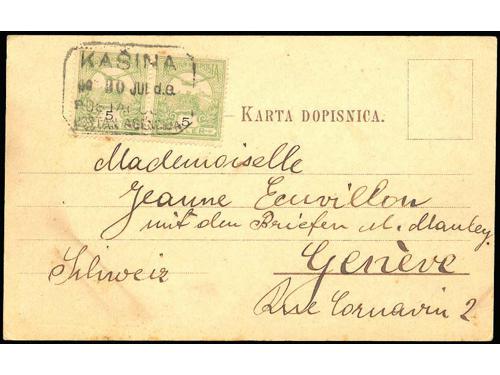 KAŠINA
09 JUL d.e.
5 5
KARTA DOPISNICA.
Mademoiselle
Jeanne Ecuvillon
mit den Briefen M. Manley.
Schweiz
Genève
Rue Cornavin 2